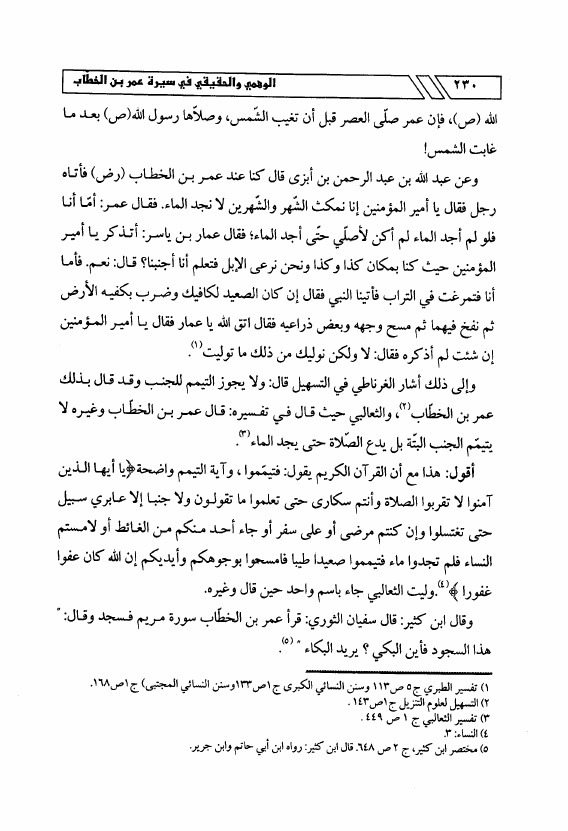 ٢٣٠
الوهمي والحقيقي في سيرة عمر بن الخطّاب
الله (ص)، فإن عمر صلّى العصر قبل أن تغيب الشّمس، وصلاّها رسول الله(ص) بعد ما
غابت الشمس!
وعن عبد الله بن عبد الرحمن بن أبزى قال كنا عند عمر بن الخطاب (رض) فأتاه
رجل فقال يا أمير المؤمنين إنا نمكث الشّهر والشّهرين لا نجد الماء. فقال عمر: أمّا أنا
فلو لم أجد الماء لم أكن لأصلّي حتّى أجد الماء؛ فقال عمار بن ياسر: أتذكر يا أمير
المؤمنين حيث كنا بمكان كذا وكذا ونحن نرعى الإبل فتعلم أنا أجنبنا؟ قال: نعم. فأما
أنا فتمرغت في التراب فأتينا النبي فقال إن كان الصعيد لكافيك وضرب بكفيه الأرض
ثم نفخ فيهما ثم مسح وجهه وبعض ذراعيه فقال اتق الله يا عمار فقال يا أمير المؤمنين
إن شئت لم أذكره فقال: لا ولكن نوليك من ذلك ما توليت(١).
وإلى ذلك أشار الغرناطي في التسهيل قال: ولا يجوز التيمم للجنب وقد قال بذلك
عمر بن الخطّاب(٢)، والثعالبي حيث قال في تفسيره: قال عمر بن الخطّاب وغيره لا
يتيمّم الجنب البتّة بل يدع الصّلاة حتى يجد الماء(٣).
أقول: هذا مع أن القرآن الكريم يقول: فتيمّموا، وآية التيمم واضحة﴿يا أيها الذين
آمنوا لا تقربوا الصلاة وأنتم سكارى حتى تعلموا ما تقولون ولا جنبا إلا عابري سبيل
حتى تغتسلوا وإن كنتم مرضى أو على سفر أو جاء أحد منكم من الغائط أو لامستم
النساء فلم تجدوا ماء فتيمموا صعيدا طيبا فامسحوا بوجوهكم وأيديكم إن الله كان عفوا
غفورا ﴾(٤).وليت الثعالبي جاء باسم واحد حين قال وغيره.
وقال ابن كثير: قال سفيان الثوري: قرأ عمر بن الخطّاب سورة مريم فسجد وقال: "
هذا السجود فأين البكي ؟ يريد البكاء "(٥).
١) تفسير الطبري ج٥ ص١١٣ وسنن النسائي الكبرى ج١ص١٣٣وسنن النسائي المجتبى) ج١ص١٦٨.
٢) التسهيل لعلوم التنزيل ج١ص١٤٣.
٣) تفسير الثعالبي ج ١ ص ٤٤٩ .
٤) النساء: ٣.
٥) مختصر ابن كثير، ج ٢ ص ٦٤٨. قال ابن كثير: رواه ابن أبي حاتم وابن جرير.